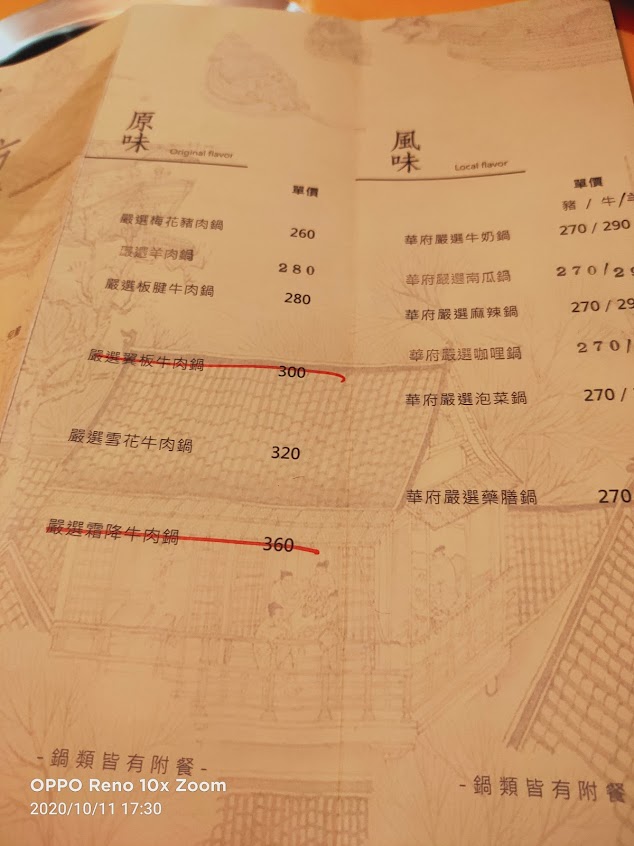 原味
Original flavor
單價
嚴選梅花豬肉鍋 260
嚴選羊肉鍋 280
嚴選板腱牛肉鍋 280
嚴選翼板牛肉鍋 300
嚴選雪花牛肉鍋 320
嚴選霜降牛肉鍋 360
-鍋類皆有附餐-
風味
Local flavor
單價
豬 / 牛/羊
華府嚴選牛奶鍋 270 / 290
華府嚴選南瓜鍋 270/29
華府嚴選麻辣鍋 270 / 29
華府嚴選咖哩鍋 270/
華府嚴選泡菜鍋 270 /
華府嚴選藥膳鍋 270
-鍋類皆有附餐
OPPO Reno 10x Zoom
2020/10/11 17:30